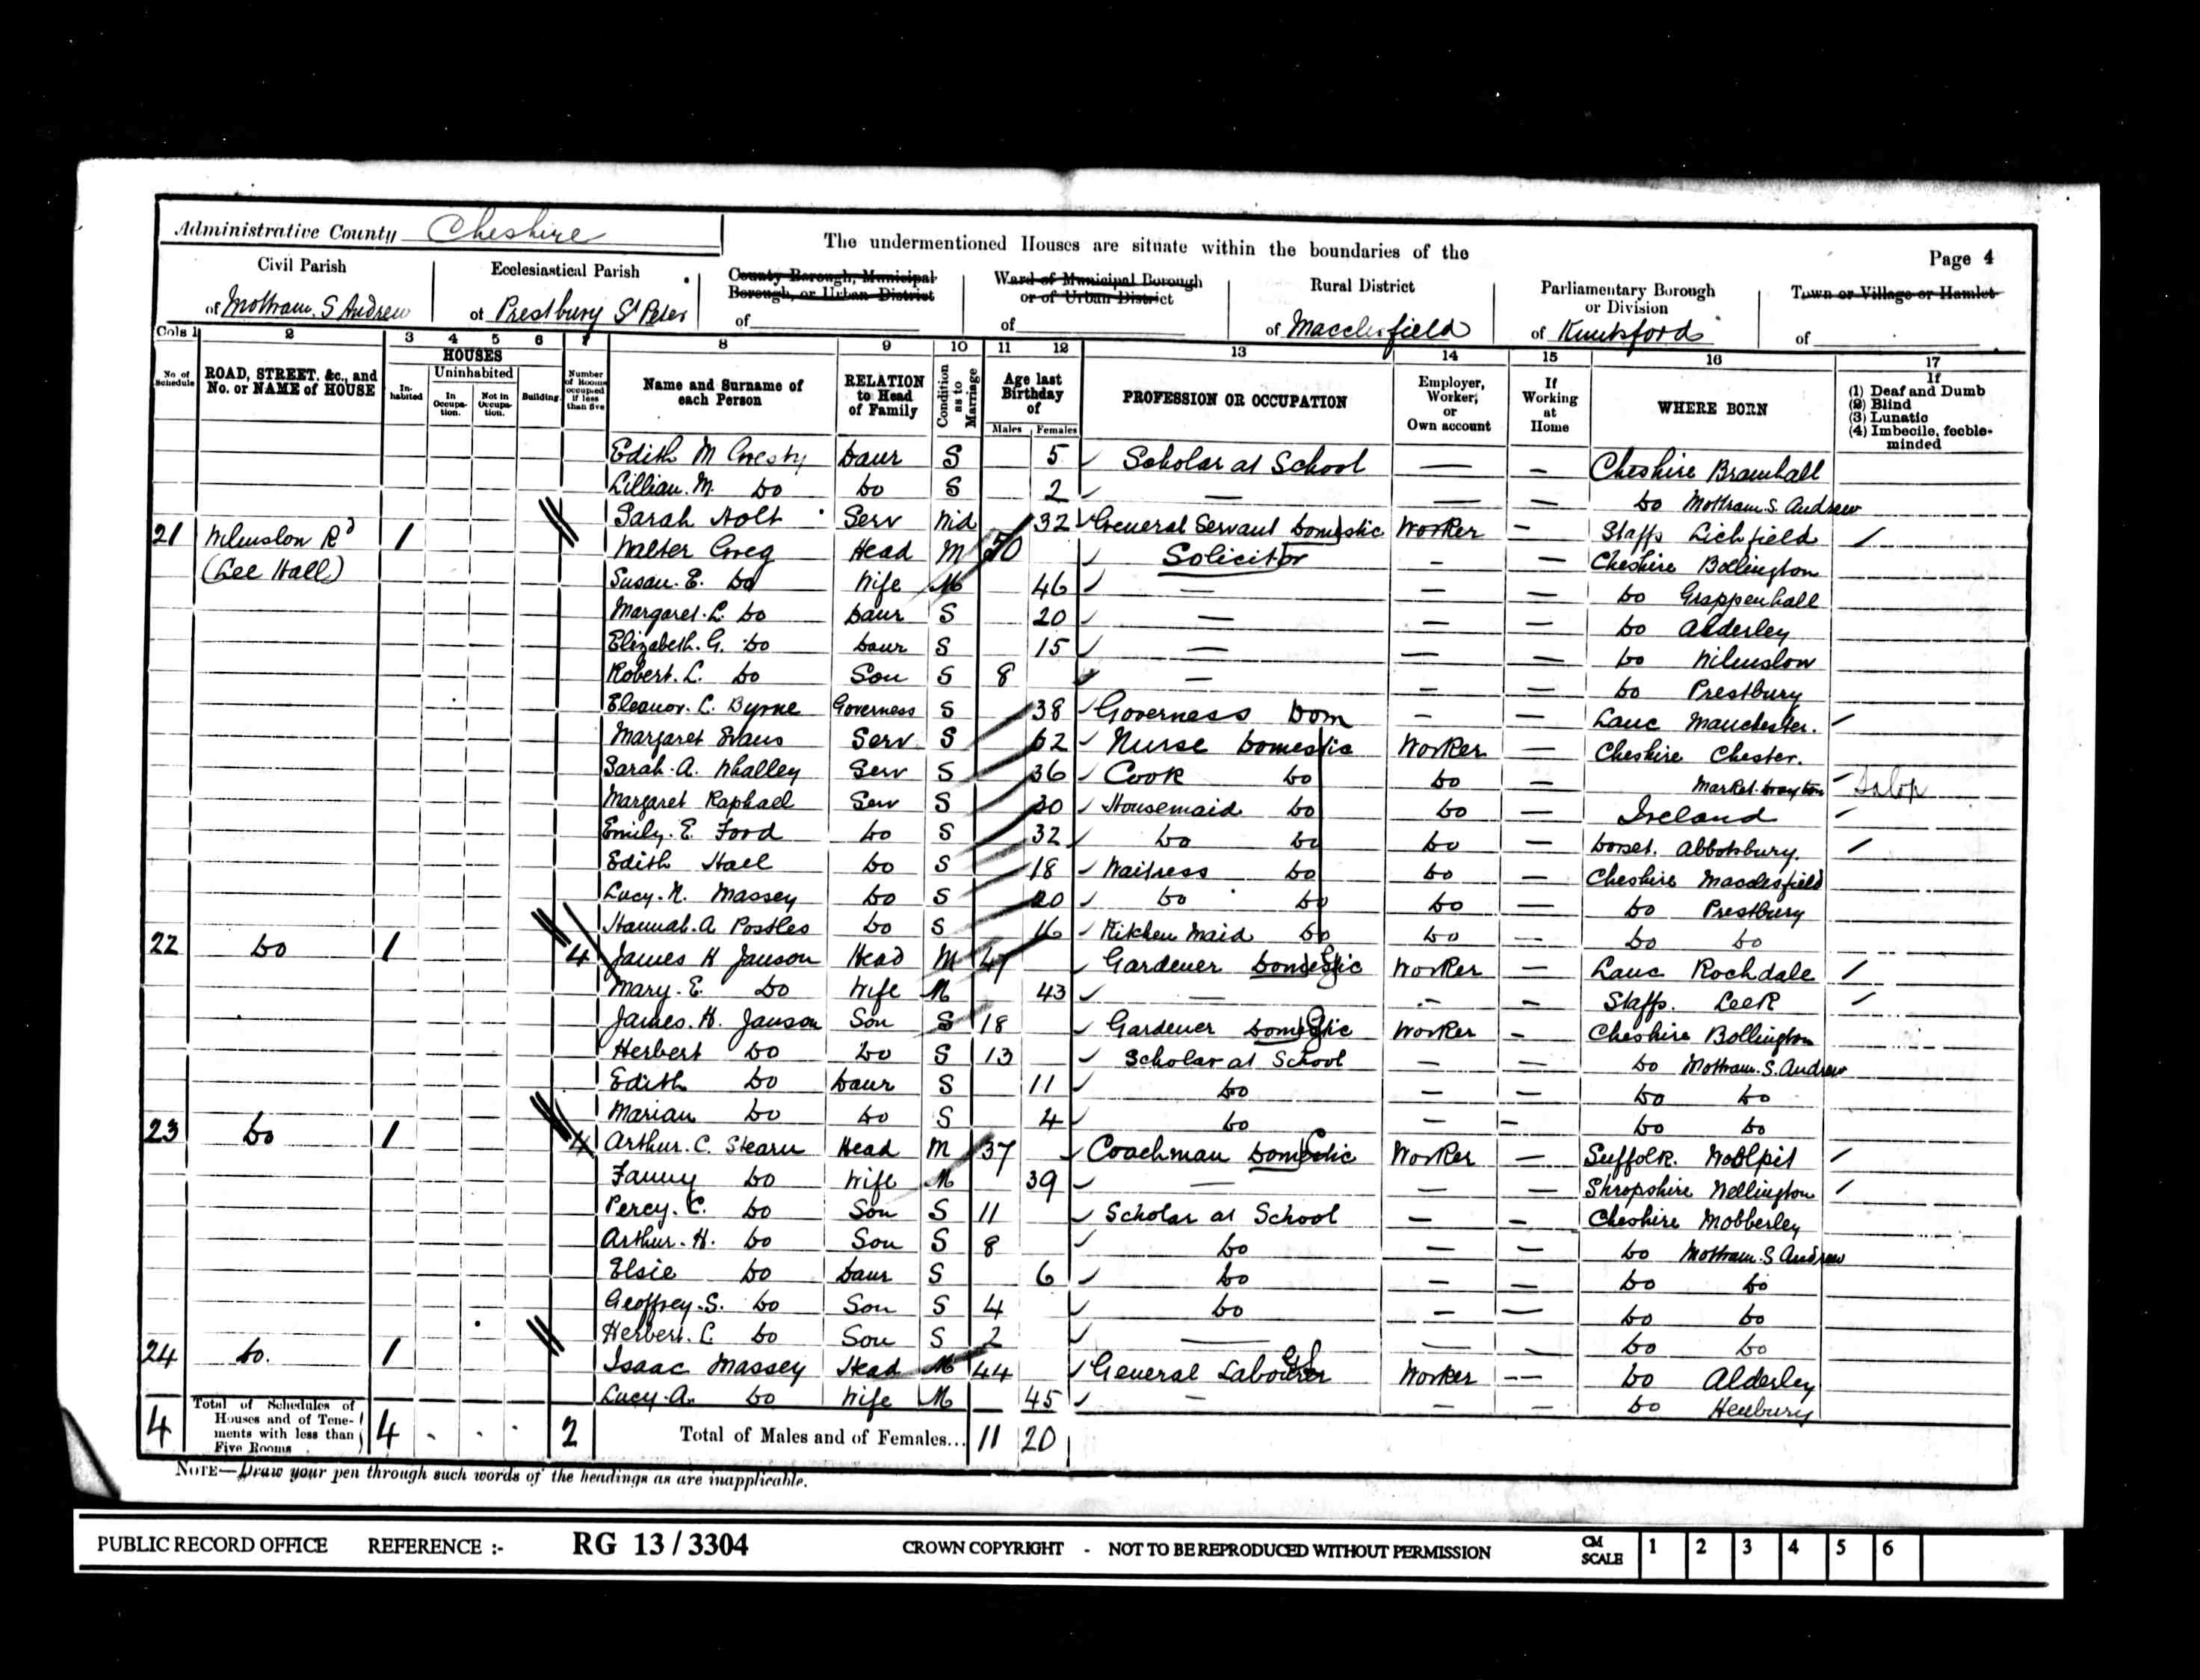 Administrative County Cheshire
The undermentioned Houses are situate within the boundaries of the
Page 4
Civil Parish of Mottram. S Andrew
Ecclesiastical Parish of Prestbury St Peter
County Borough, Municipal Borough, or Urban District of
Ward of Municipal Borough or of Urban District of
Rural District of Macclesfield
Parliamentary Borough or Division of Knutsford
Town or Village or Hamlet of
Cols 1 2 3 4 5 6 7 8 9 10 11 12 13 14 15 16 17
No. of Schedule
ROAD, STREET, &c., and No. or NAME of HOUSE
HOUSES
Inhabited
Uninhabited
In Occupation.
Not in Occupation.
Building.
Number of Rooms occupied if less than five
Name and Surname of each Person
RELATION to Head of Family
Condition as to Marriage
Age last Birthday of
Males Females
PROFESSION OR OCCUPATION
Employer, Worker, or Own account
If Working at Home
WHERE BORN
If
(1) Deaf and Dumb
(2) Blind
(3) Lunatic
(4) Imbecile, feeble-minded
Edith M Daur S 5 Scholar at School — — Cheshire Bramhall
Lillian. M. Do Do S 2 — — — Do Mottram. S. Andrew
Sarah Holt Serv Wid 32 General Servant Domestic Worker — Staffs Lichfield
21 Wilmslow Rd 1 Walter Greg Head M 50 Solicitor — — Cheshire Bollington
(Lee Hall) Susan. E. Do Wife M 46 — — — Do Grappenhall
Margaret. L. Do Daur S 20 — — — Do Alderley
Elizabeth. G. Do Daur S 15 — — — Do Wilmslow
Robert. L. Do Son S 8 — — — Do Prestbury
Eleanor. C. Byrne Governess S 38 Governess Dom — — Lanc Manchester.
Margaret Evans Serv S 62 Nurse Domestic Worker — Cheshire Chester.
Sarah. A. Whalley Serv S 36 Cook Do Do — Market Drayton Salop
Margaret Raphael Serv S 30 Housemaid Do Do — Ireland
Emily. E. Ford Do S 32 Do Do Do — Dorset. Abbotsbury.
Edith Hall Do S 18 Waitress Do Do — Cheshire Macclesfield
Lucy. N. Massey Do S 20 Do Do Do — Do Prestbury
Hannah. A Postles Do S 16 Kitchen Maid Do Do — Do Do
22 Do 1 4 James H Janson Head M 47 Gardener Domestic Worker — Lanc Rochdale
Mary. E. Do Wife M 43 — — — Staffs. Leek
James. H. Janson Son S 18 Gardener Domestic Worker — Cheshire Bollington
Herbert Do Do S 13 Scholar at School — — Do Mottram. S. Andrew
Edith Do Daur S 11 Do — — Do Do
Marian Do Do S 4 Do — — Do Do
23 Do 1 4 Arthur. C. Stearn Head M 37 Coachman Domestic Worker — Suffolk. Woolpit
Fanny Do Wife M 39 — — — Shropshire Wellington
Percy. C. Do Son S 11 Scholar at School — — Cheshire Mobberley
Arthur. H. Do Son S 8 Do — — Do Mottram. S Andrew
Elsie Do Daur S 6 Do — — Do Do
Geoffrey. S. Do Son S 4 Do — — Do Do
Herbert. C. Do Son S 2 — — — Do Do
24 Do. 1 Isaac Massey Head M 44 General Labourer Worker — Do Alderley
Lucy. A. Do Wife M 45 — — — Do Henbury
4 Total of Schedules of Houses and of Tenements with less than Five Rooms 4 2 Total of Males and of Females... 11 20
NOTE—Draw your pen through such words of the headings as are inapplicable.
PUBLIC RECORD OFFICE REFERENCE :- RG 13 / 3304 CROWN COPYRIGHT - NOT TO BE REPRODUCED WITHOUT PERMISSION CM SCALE 1 2 3 4 5 6